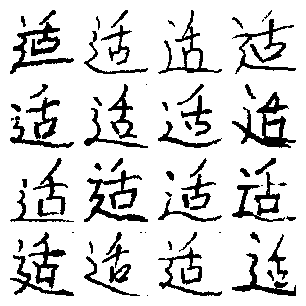 适适适适
适适适适
适适适适
适适适适